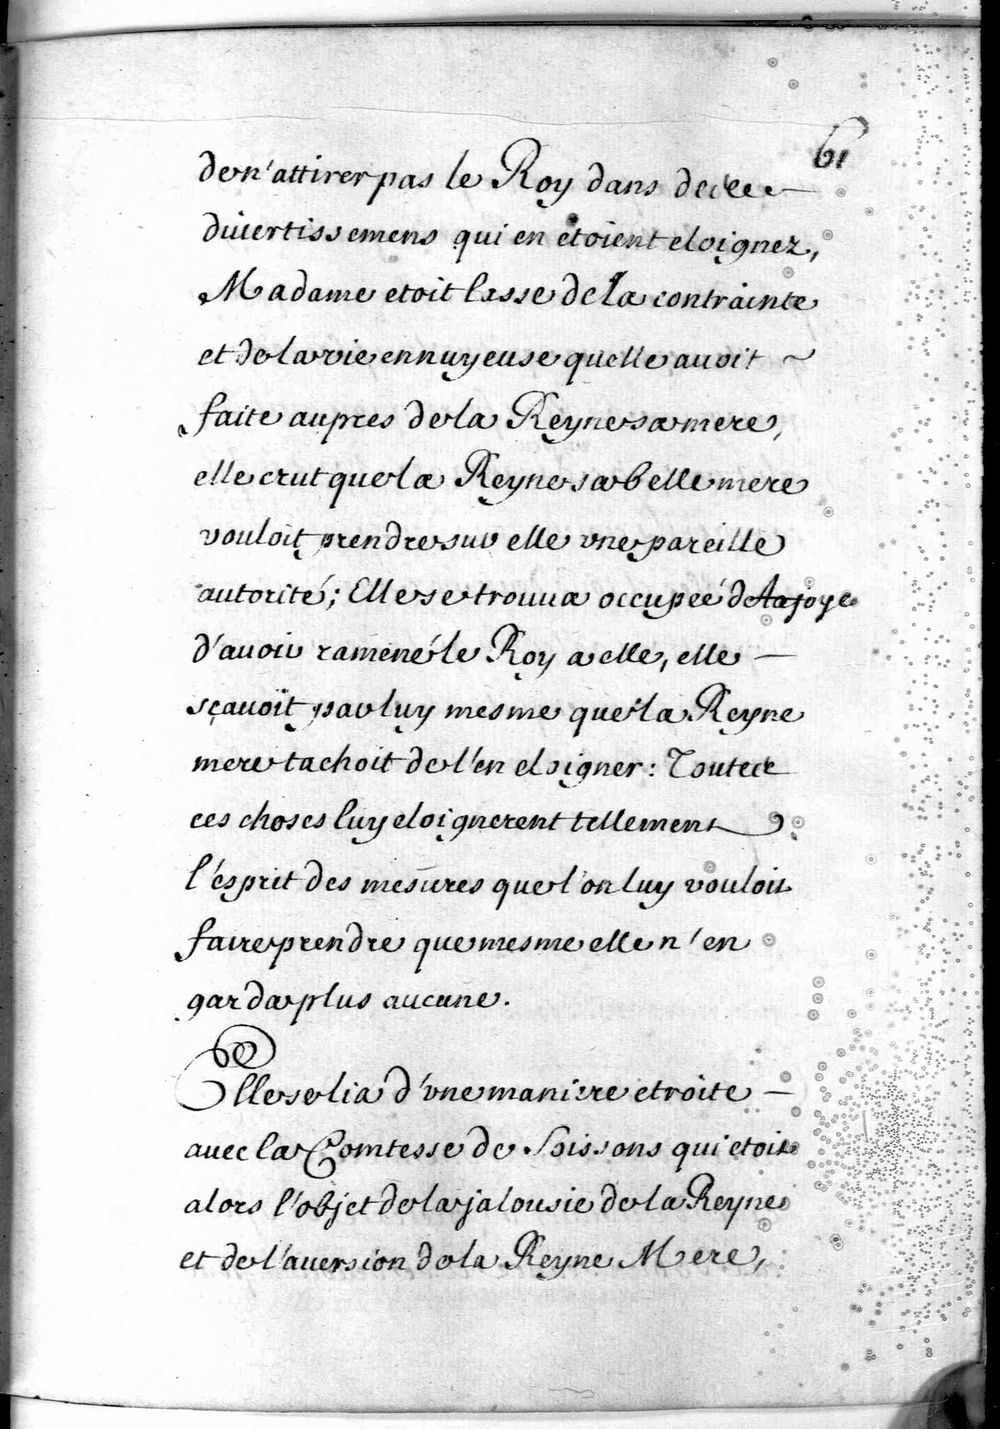 61
de n'attirer pas le Roy dans des
divertissemens qui en etoient eloignez,
Madame etoit lasse de la contrainte
et de la vie ennuyeuse quelle avoit ~
faite aupres de la Reyne sa mere,
elle crut que la Reyne sa belle mere
vouloit prendre sur elle vne pareille
autorité; Elle se trouua occupée de la joye
d'avoir ramené le Roy a elle, elle —
sçavoit par luy mesme que la Reyne
mere tachoit de l'en eloigner: Toutes
ces choses luy eloignerent tellement
l'esprit des mesures que l'on luy vouloit
faire prendre que mesme elle n'en
garda plus aucune.
Elle se lia d'vne maniere etroite —
avec la Comtesse de Soissons qui etoit
alors l'objet de la jalousie de la Reyne
et de l'aversion de la Reyne Mere,